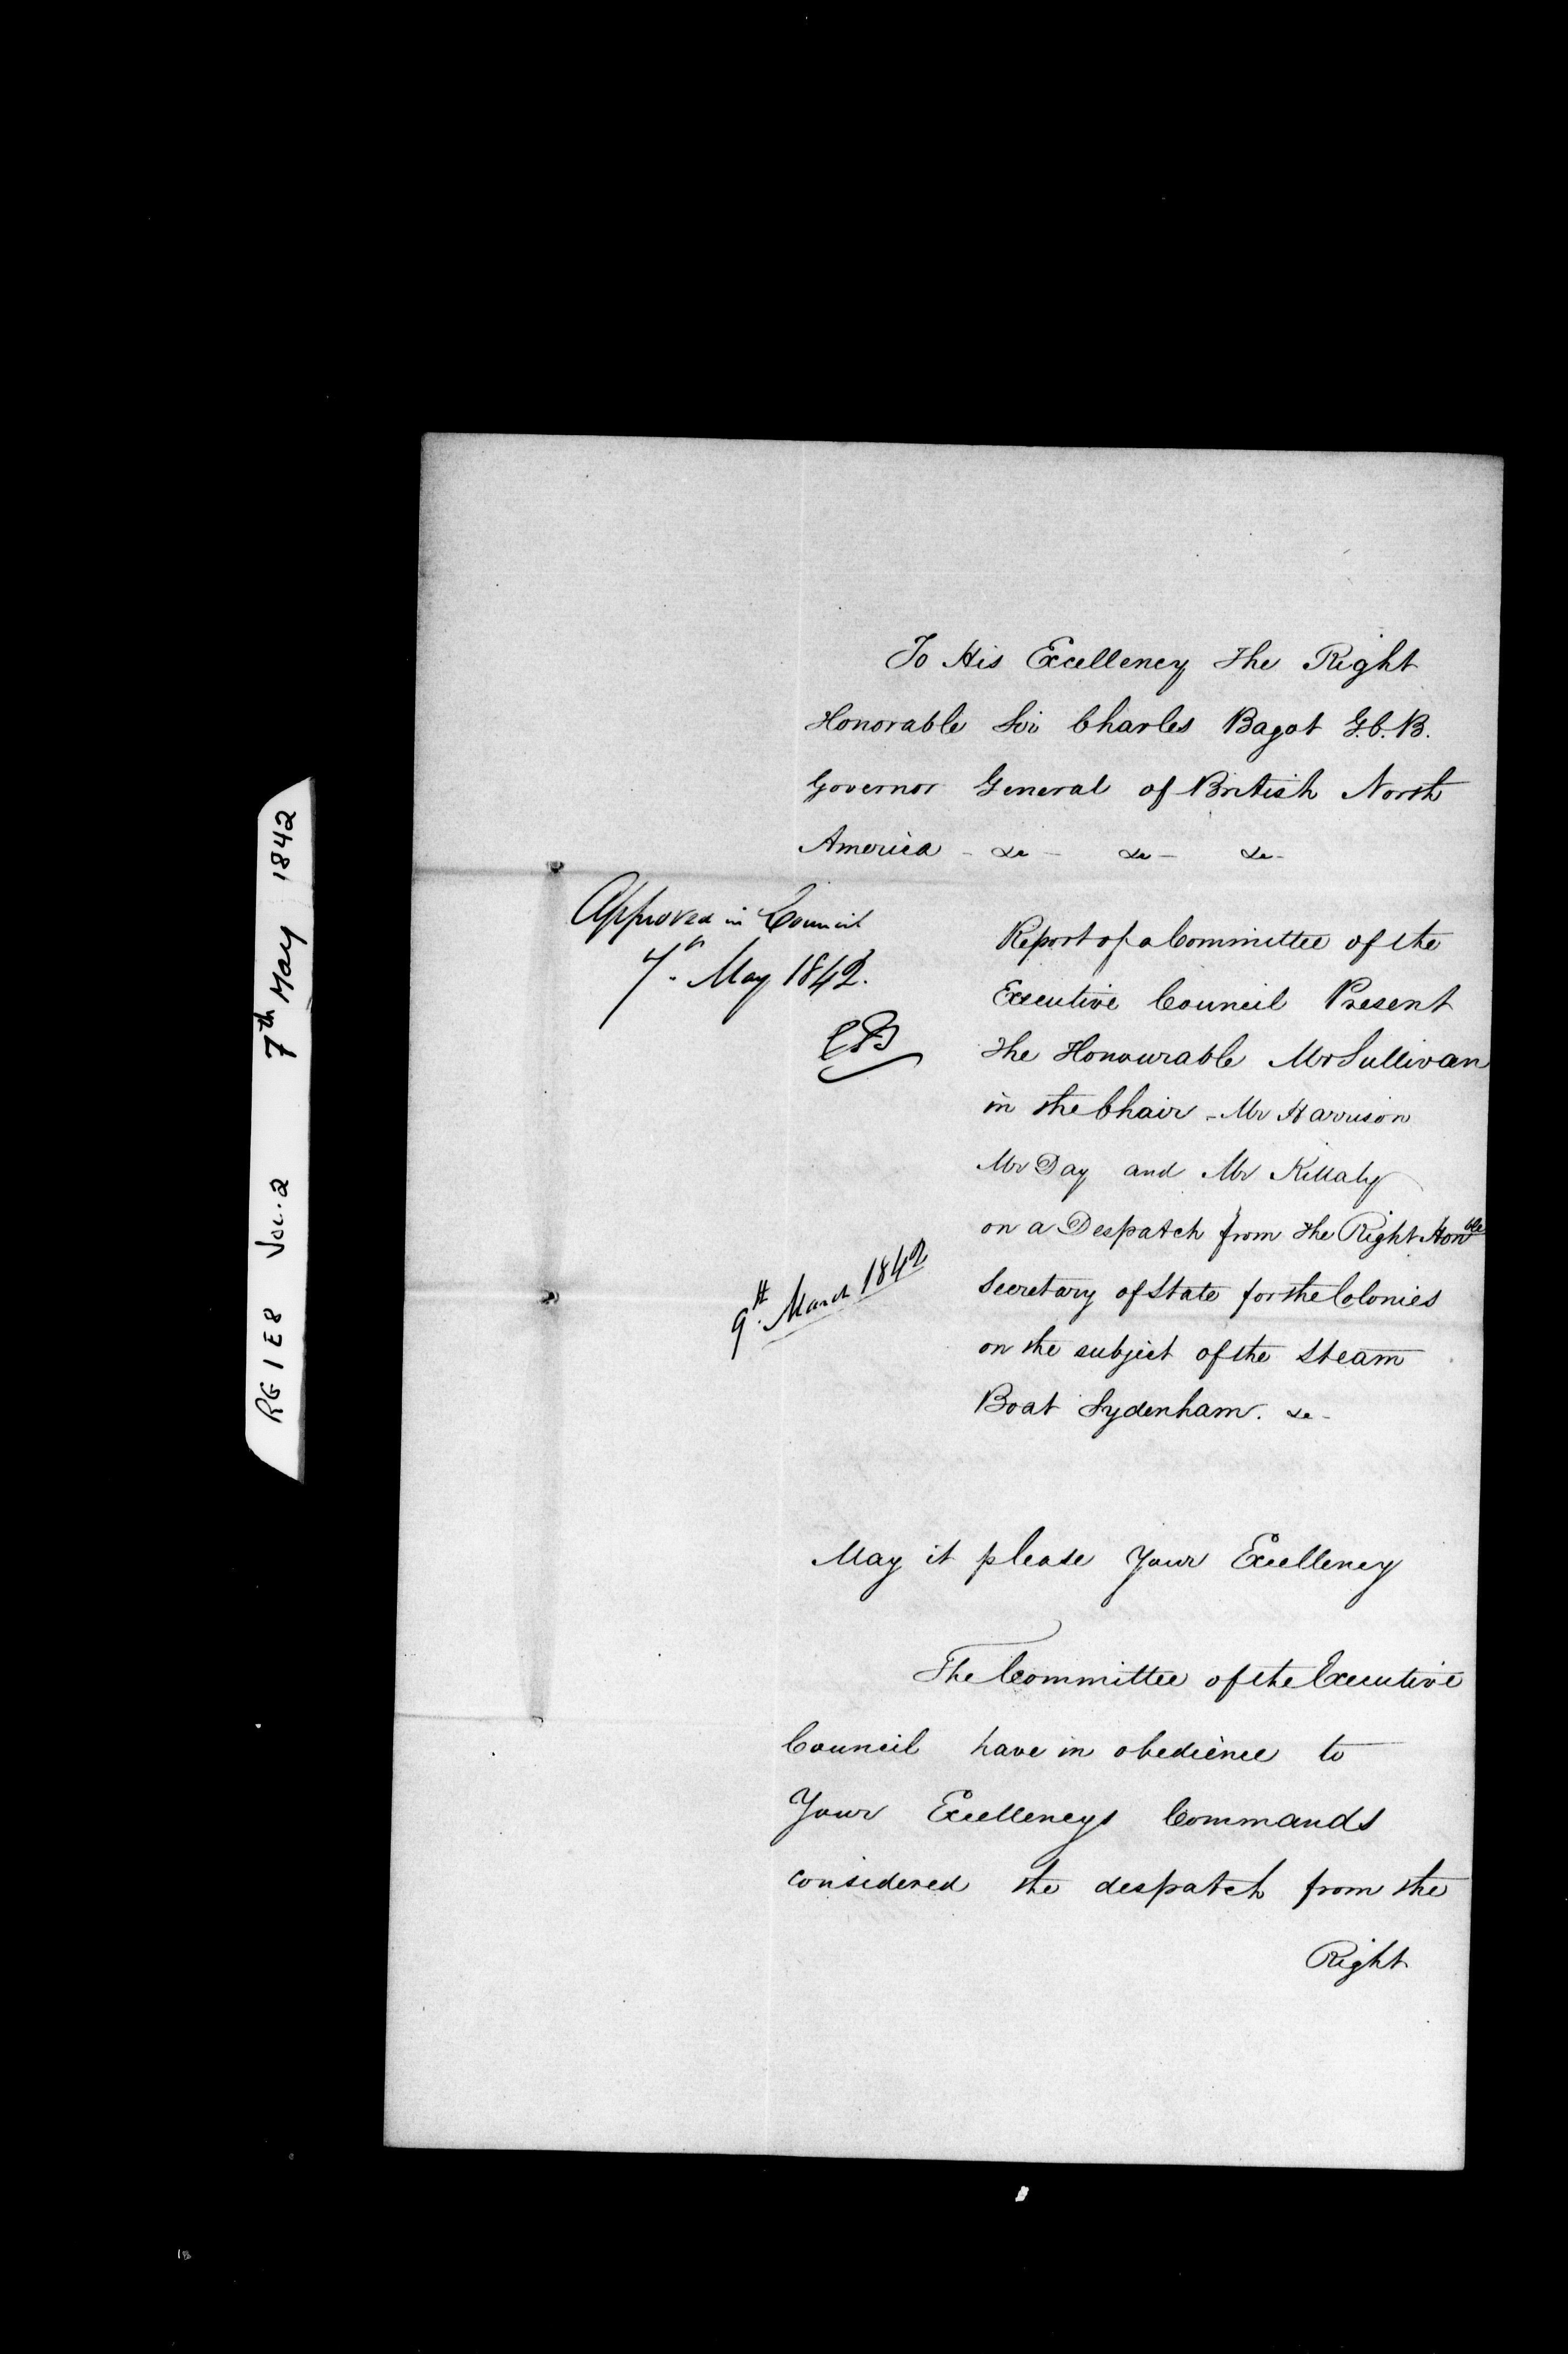 RG 1 E8 Vol. 2 7th May 1842
To His Excellency The Right
Honorable Sir Charles Bagot G.C.B.
Governor General of British North
America - &c - &c - &c -
Approved in Council
7th May 1842.
CB
Report of a Committee of the
Executive Council Present
The Honourable Mr Sullivan
in the Chair - Mr Harrison
Mr Day and Mr Killaly
on a Despatch from The Right Honble
9th March 1842
Secretary of State for the Colonies
on the subject of the Steam
Boat Sydenham. &c -
May it please Your Excellency
The Committee of the Executive
Council have in obedience to
Your Excellencys Commands
considered the despatch from the
Right